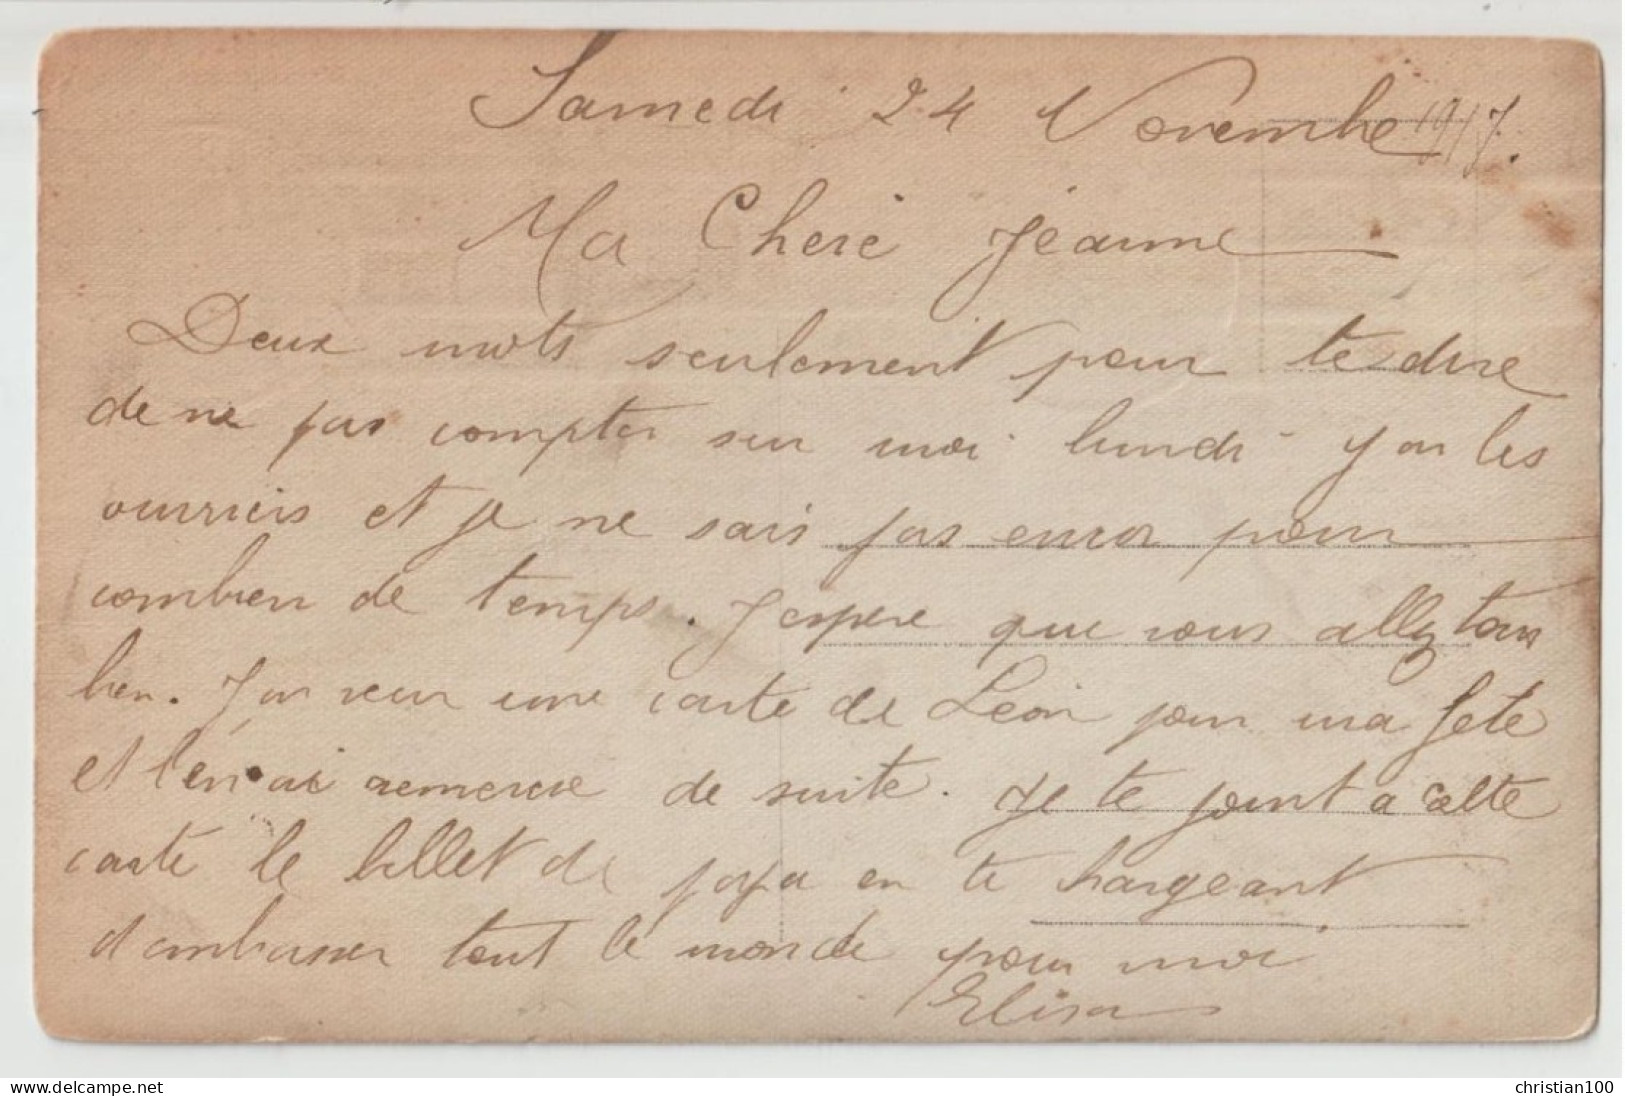 Samedi 24 Novembre 1917.
Ma Cheré Jeanne
Deux mots seulement pour te dire
de ne pas compter sur moi lundi j'ai les
ouvriers et je ne sais pas encor pour
combien de temps. J'espere que vous allez tous
bien. J'ai reçu une carte de Léon pour ma fete
et l'en ai remercie de suite. Je te joint a cette
carte le billet de papa en te chargeant
d'embrasser tout le monde pour moi
Elisa
www.delcampe.net
christian100